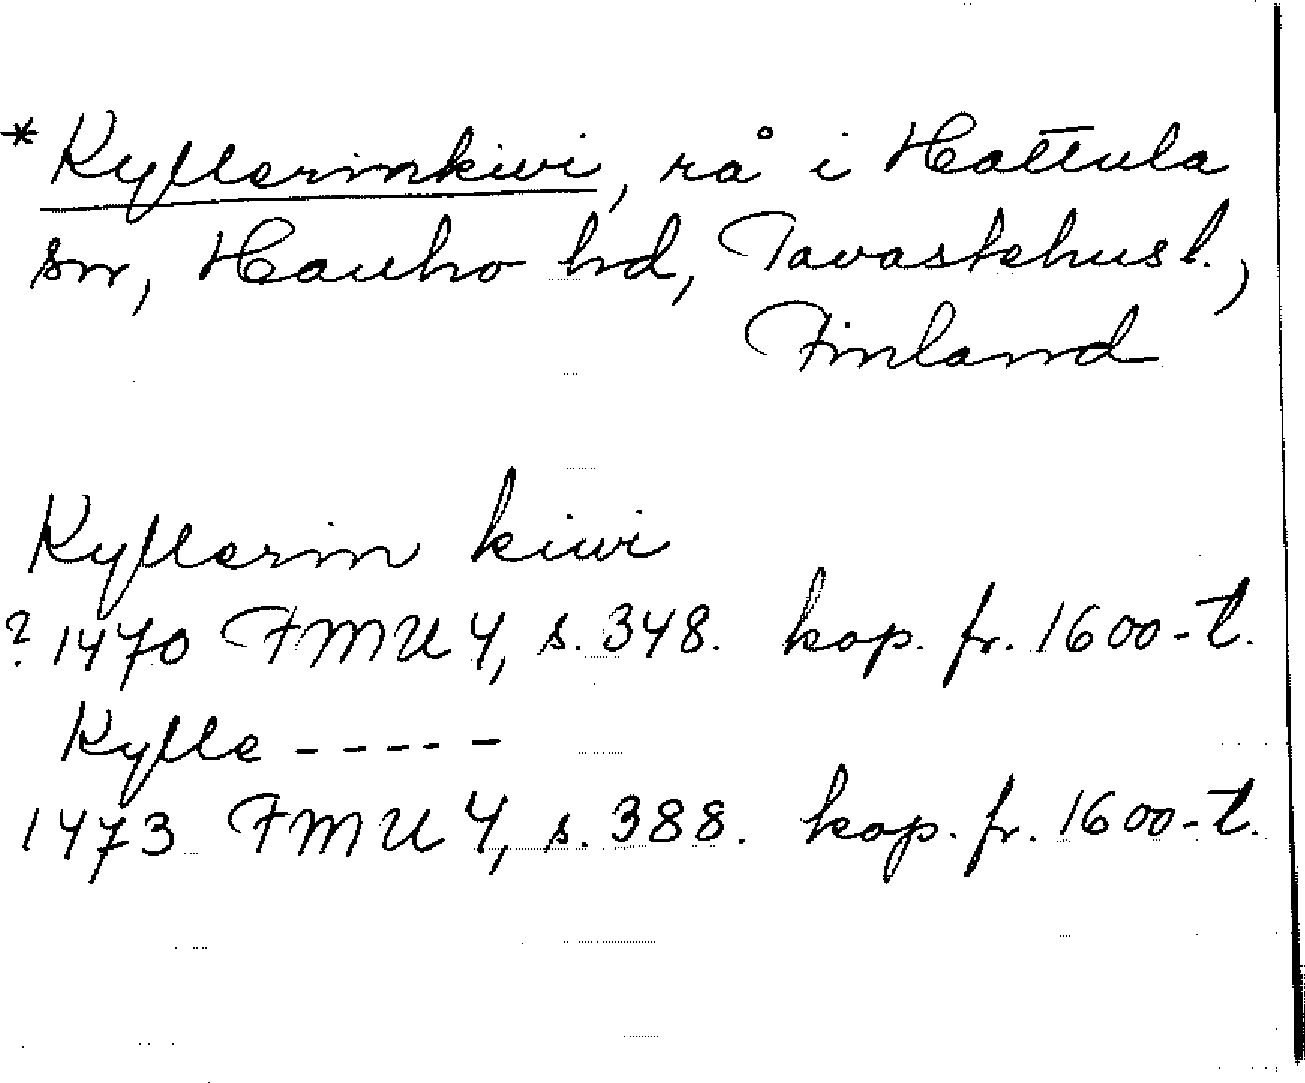 * Kyllerinkivi, rå i Hattula
sn, Hauho hd, Tavastehus l.,
Finland
Kyllerin kivi
? 1470 FMU 4, s. 348. kop. fr. 1600-t.
Kylle - - - - -
1473 FMU 4, s. 388. kop. fr. 1600-t.